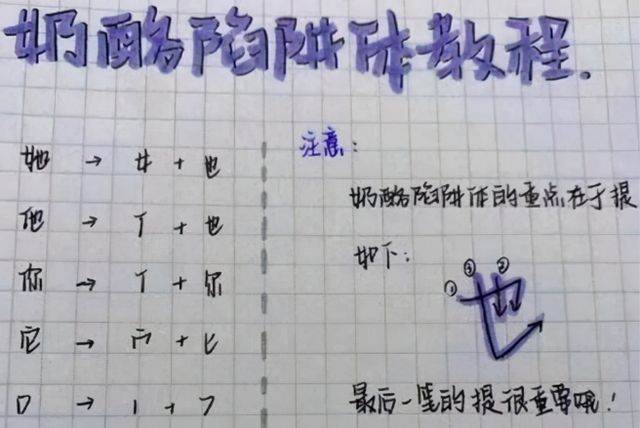 奶酪陷阱体教程.
她 → 女 + 也
他 → 亻 + 也
你 → 亻 + 尔
它 → 宀 + 匕
口 → 丨 + ㇆
注意:
奶酪陷阱体的重点在于提
如下:
① ③ ②
也
最后一笔的提很重要哦!